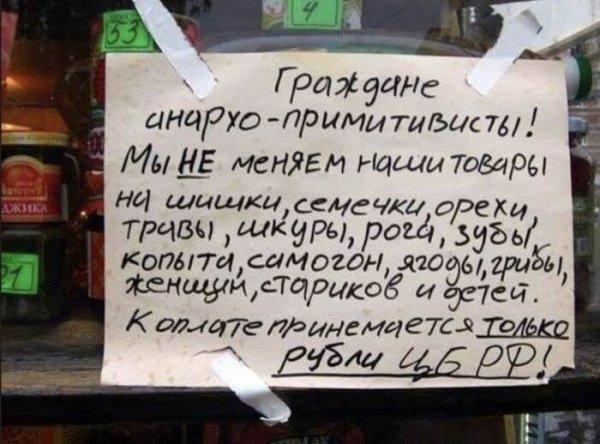 33
4
Граждане
анархо-примитивисты!
Мы НЕ меняем наши товары
на шишки, семечки, орехи,
травы, шкуры, рога, зубы,
копыта, самогон, ягоды, грибы,
женщин, стариков и детей.
К оплате принемается только
рубли ЦБ РФ!
АДЖИКА
21